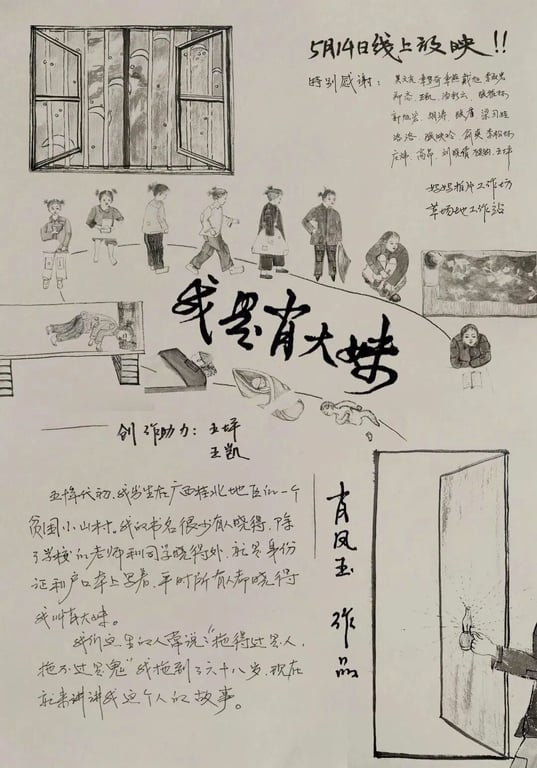 5月14日线上放映!!
特别感谢:
吴文光 章梦奇 戴旭 李新民
王凯、洛彩云、
胡涛、张雀、梁习桂
洛洛、俞爽、李松梅
高昂、刘晓倩 王坪
妈妈拍片工作坊
草场地工作站
我是肖大妹
创作助力:王坪
王凯
五十年代初,我出生在广西桂北地区的一个
贫困小山村。我的书名很少有人晓得,除
了学校的老师和同学晓得外,就是身份
证和户口本上写着,平时所有人都晓得
我叫肖大妹。
我们这里的人常说:“拖得过是人,
拖不过是鬼”我拖到了六十八岁,现在
就来讲讲我这个人的故事。
肖凤玉 作品